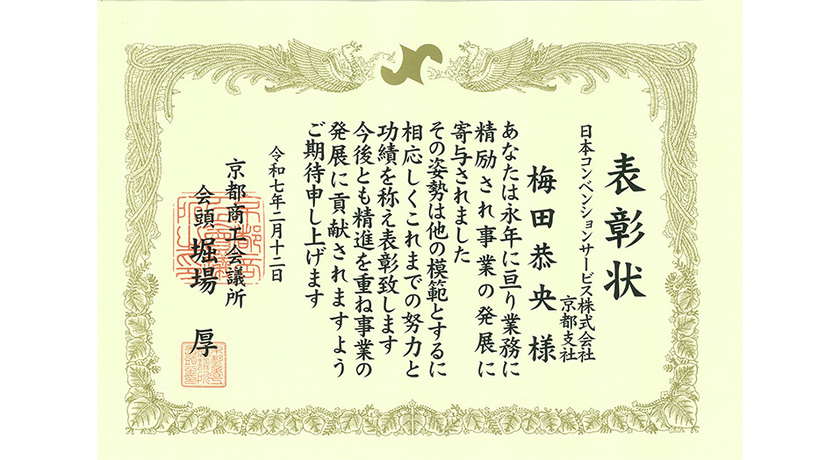 表彰状
日本コンベンションサービス株式会社
京都支社
梅田恭央様
あなたは永年に亘り業務に
精励され事業の発展に
寄与されました
その姿勢は他の模範とするに
相応しくこれまでの努力と
功績を称え表彰致します
今後とも精進を重ね事業の
発展に貢献されますよう
ご期待申し上げます
令和七年二月十二日
京都商工会議所
会頭 堀場 厚